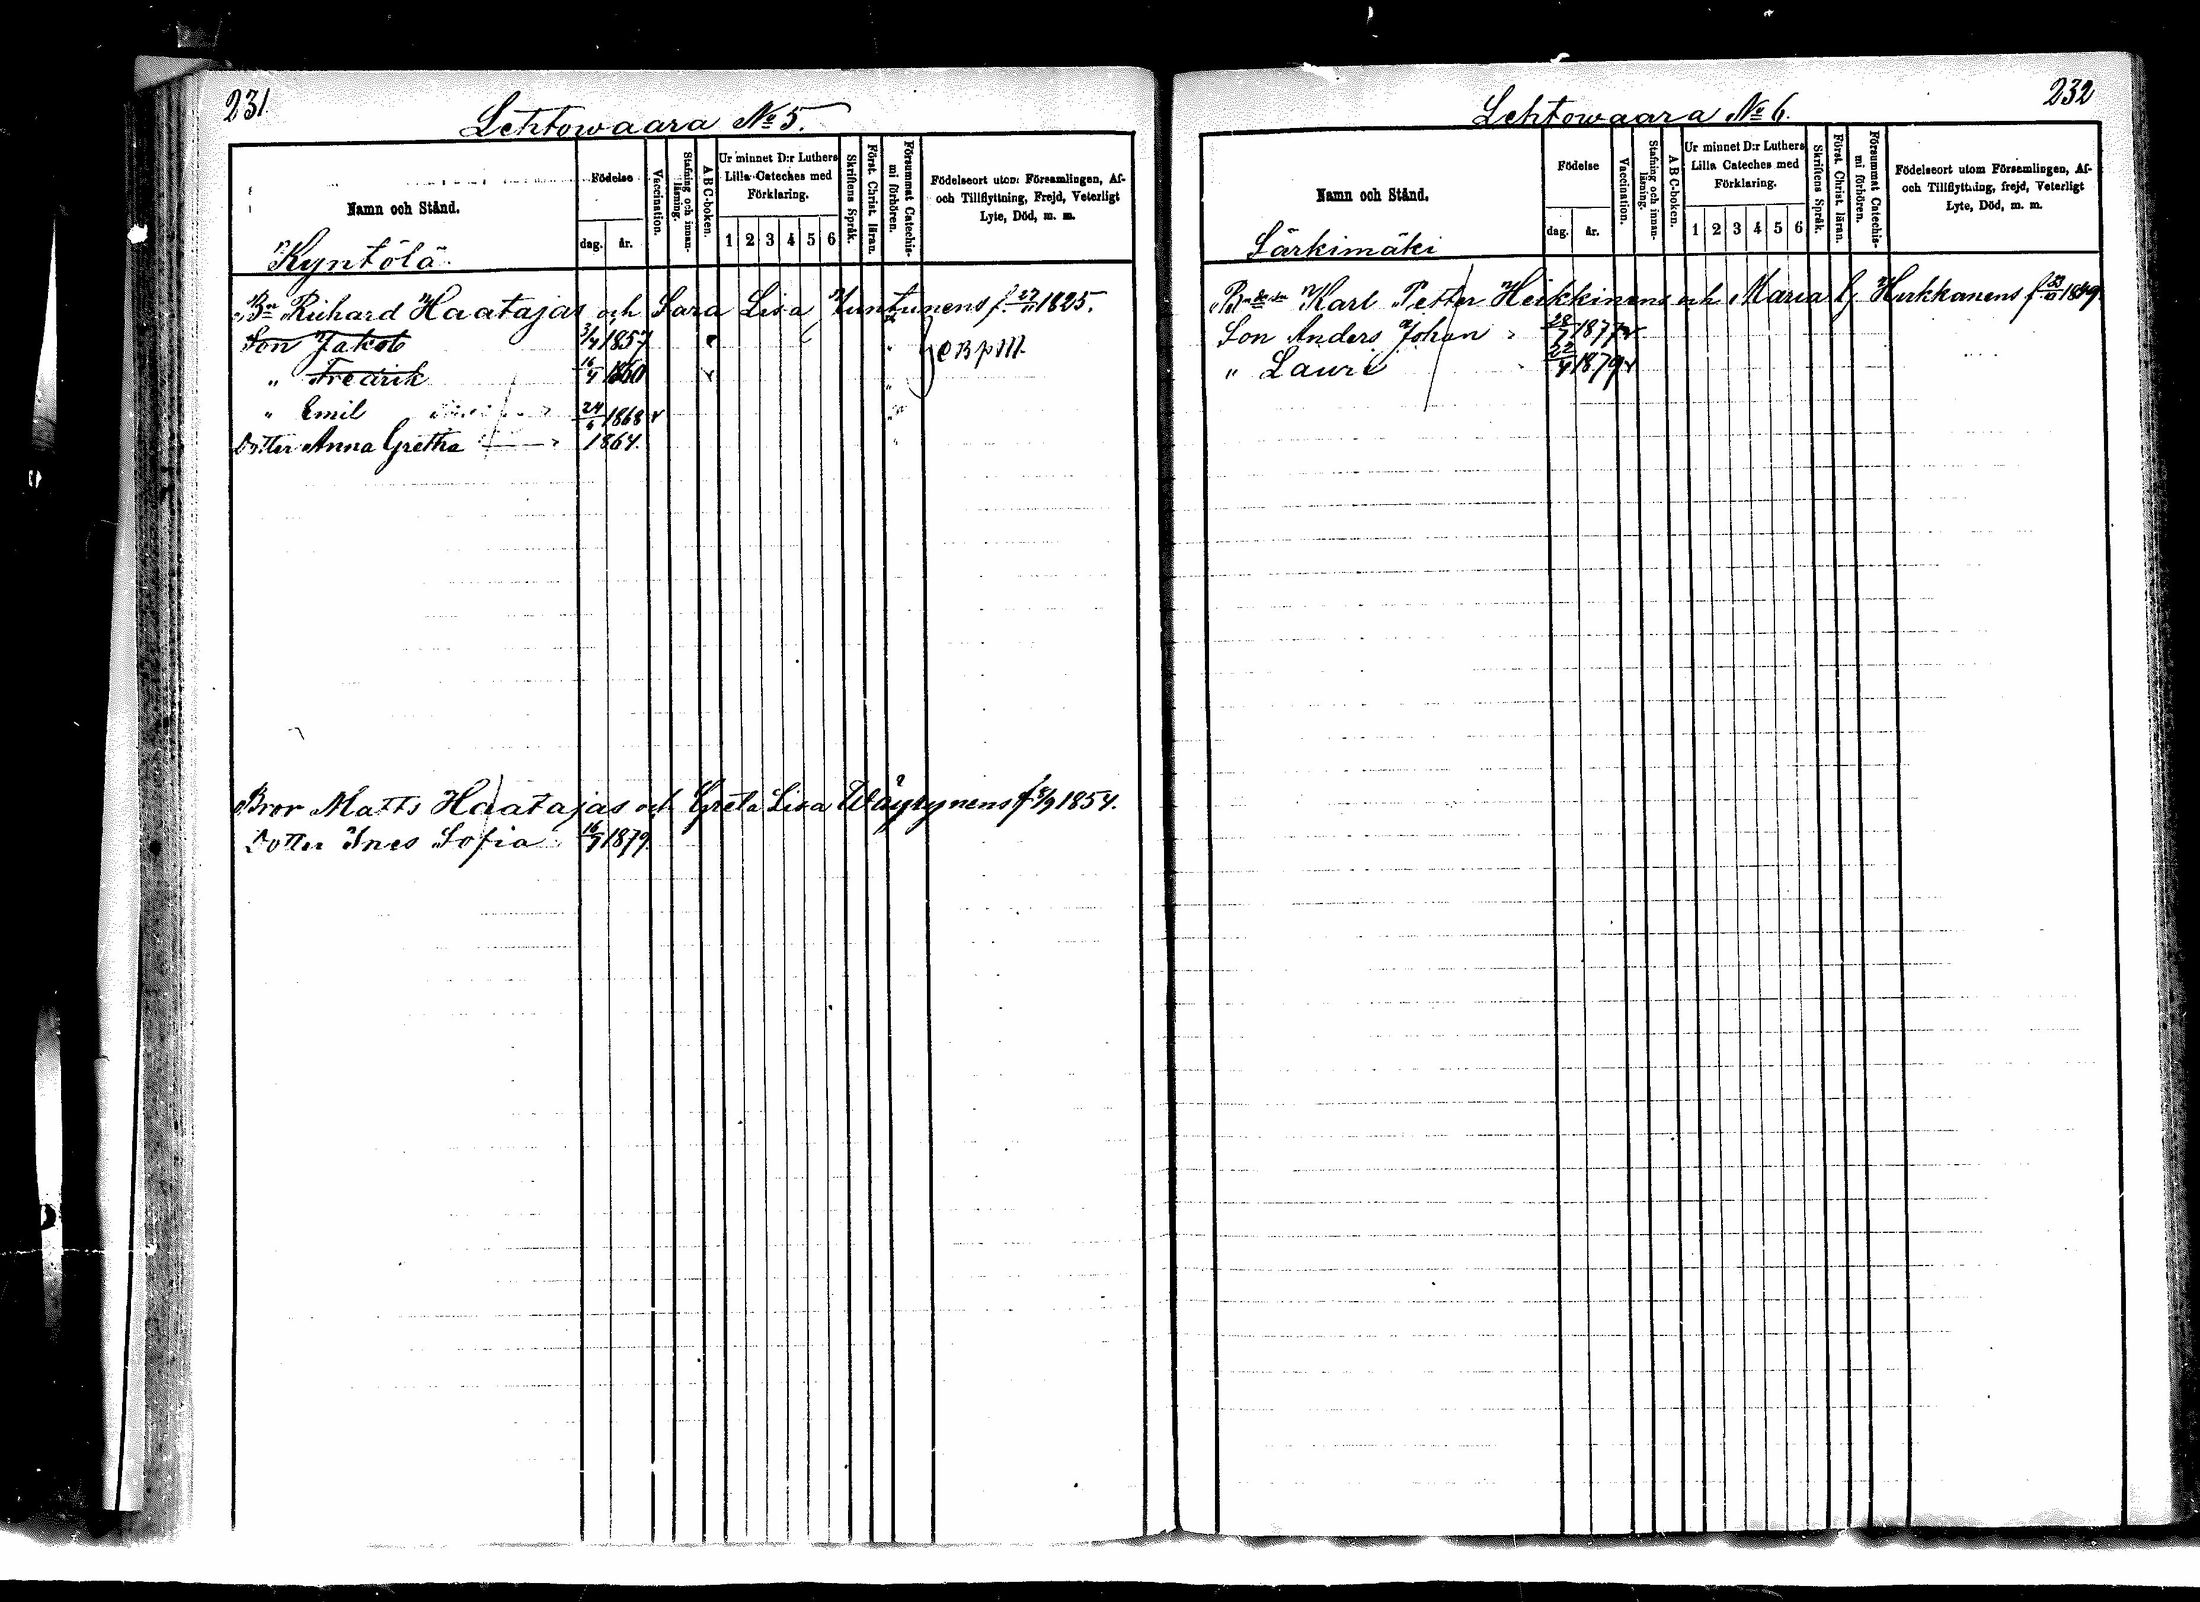 231.
Lehtowaara No 5.
Namn och Stånd.
Födelse
dag. år.
Vaccination.
Stafning och innanläsning.
A B C-boken.
Ur minnet D:r Luthers Lilla Cateches med Förklaring.
1 2 3 4 5 6
Skriftens Språk.
Först. Christ. läran.
Försummat Catechismi förhören.
Födelseort utom Församlingen, Af- och Tillflyttning, Frejd, Veterligt Lyte, Död, m. m.
Kyntölä
Bn Richard Haatajas och Sara Lisa Juntunens f. 27/11 1825.
Son Jakob 3/4 1857
" Fredrik 16/4 1860
" Emil 24/6 1868
Dotter Anna Gretha 1864.
Bror Matts Haatajas och Greta Lisa Wäyrynens f. 1854.
Dotter Ines Sofia 1879.
232
Lehtowaara No 6.
Namn och Stånd.
Födelse
dag. år.
Vaccination.
Stafning och innanläsning.
A B C-boken.
Ur minnet D:r Luthers Lilla Cateches med Förklaring.
1 2 3 4 5 6
Skriftens Språk.
Först. Christ. läran.
Försummat Catechismi förhören.
Födelseort utom Församlingen, Af- och Tillflyttning, frejd, Veterligt Lyte, Död, m. m.
Särkimäki
Karl Petter Heikkinens och Maria Hurkkanens f.
Son Anders Johan 28/7 1877
" Lauri 22/4 1879